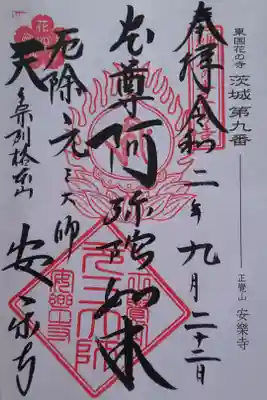 東国花の寺 茨城 第九番
正覚山 安樂寺
奉拝 令和二年九月二十二日
本尊 阿弥陀如来
厄除 元三大師
天台宗別格本山 安楽寺
安樂寺